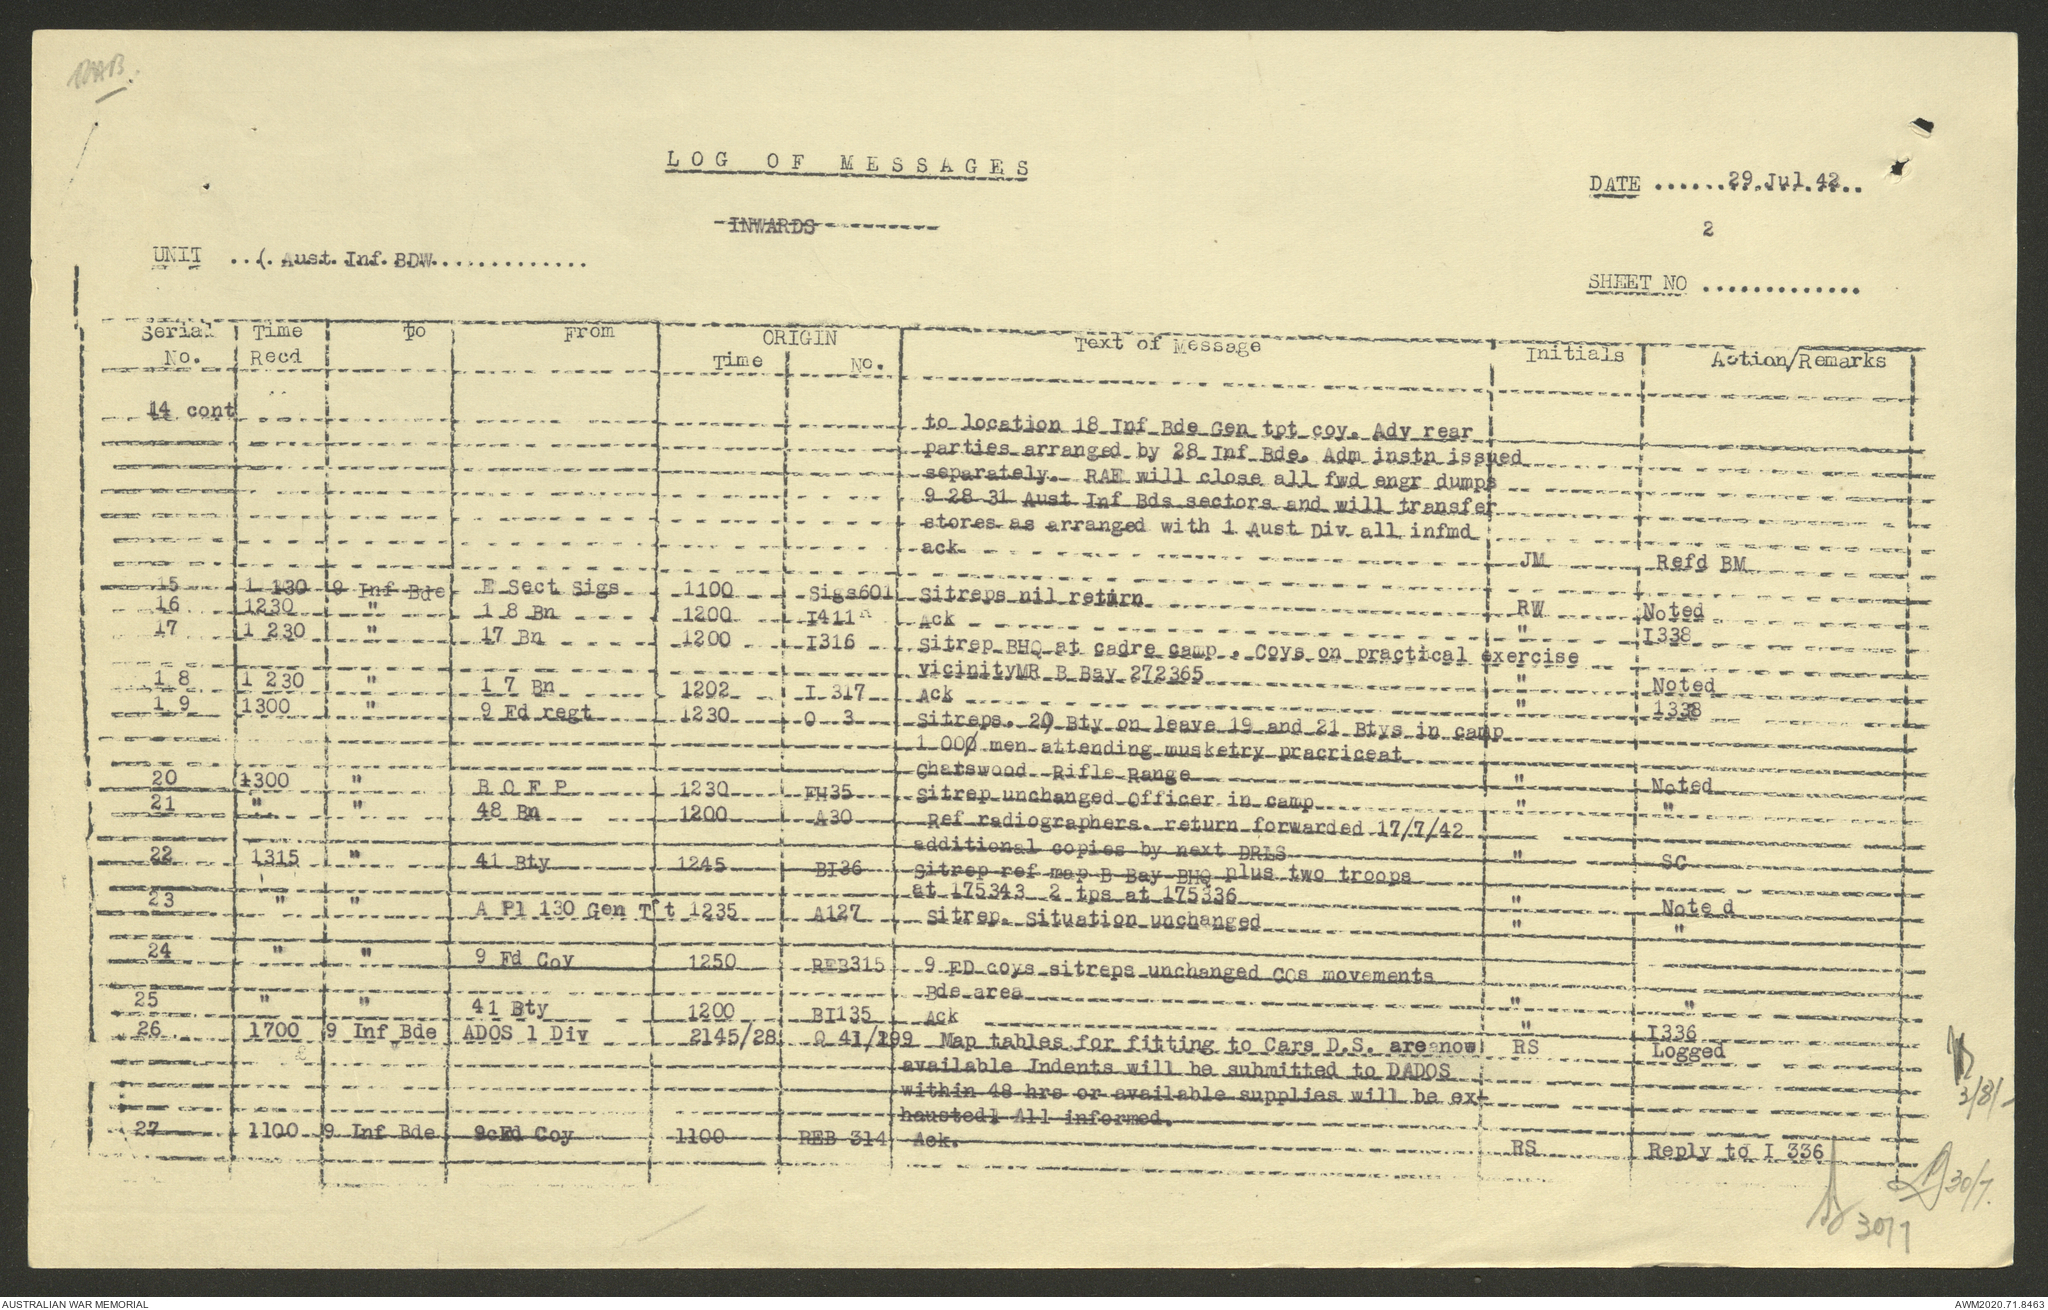 LOG OF MESSAGES
DATE ......29 Jul 42..
INWARDS
2
UNIT ...(. Aust. Inf. BDW..............
SHEET NO .............
Serial No. Time Recd To From ORIGIN Time No. Text of Message Initials Action/Remarks
14 cont to location 18 Inf Bde Gen tpt coy. Adv rear
parties arranged by 28 Inf Bde. Adm instn issued
separately. RAE will close all fwd engr dumps
9 28 31 Aust Inf Bds sectors and will transfer
stores as arranged with 1 Aust Div all infmd
ack JM Refd BM
15 1 130 9 Inf Bde E Sect Sigs 1100 Sigs601 Sitreps nil return RW Noted
16 1230 " 1 8 Bn 1200 I411 Ack " I338
17 1 230 " 17 Bn 1200 I316 Sitrep BHQ at cadre camp . Coys on practical exercise
vicinityMR B Bay 272365 " Noted
1 8 1 230 " 1 7 Bn 1202 I 317 Ack " 1338
1 9 1300 " 9 Fd regt 1230 O 3 Sitreps. 20 Bty on leave 19 and 21 Btys in camp
1 000 men attending musketry pracriceat
Chatswood Rifle Range " Noted
20 1300 " B O F P 1230 FH35 Sitrep unchanged Officer in camp " "
21 " " 48 Bn 1200 A30 Ref radiographers. return forwarded 17/7/42
additional copies by next DRLS " SC
22 1315 " 41 Bty 1245 BI36 Sitrep ref map B Bay BHQ plus two troops
at 175343 2 tps at 175336 " Note d
23 " " A Pl 130 Gen Tft 1235 A127 Sitrep. Situation unchanged " "
24 " " 9 Fd Coy 1250 REB315 9 FD coys sitreps unchanged COs movements
Bde area " "
25 " " 41 Bty 1200 BI135 Ack " I336
26 1700 9 Inf Bde ADOS 1 Div 2145/28 O 41/199 Map tables for fitting to Cars D.S. are now RS Logged
available Indents will be submitted to DADOS
within 48 hrs or available supplies will be ex-
hausted1 All informed.
27 1100 9 Inf Bde 9cFd Coy 1100 REB 314 Ack. RS Reply to I 336
3/8/-
30/7.
30/7
AUSTRALIAN WAR MEMORIAL
AWM2020.71.8463